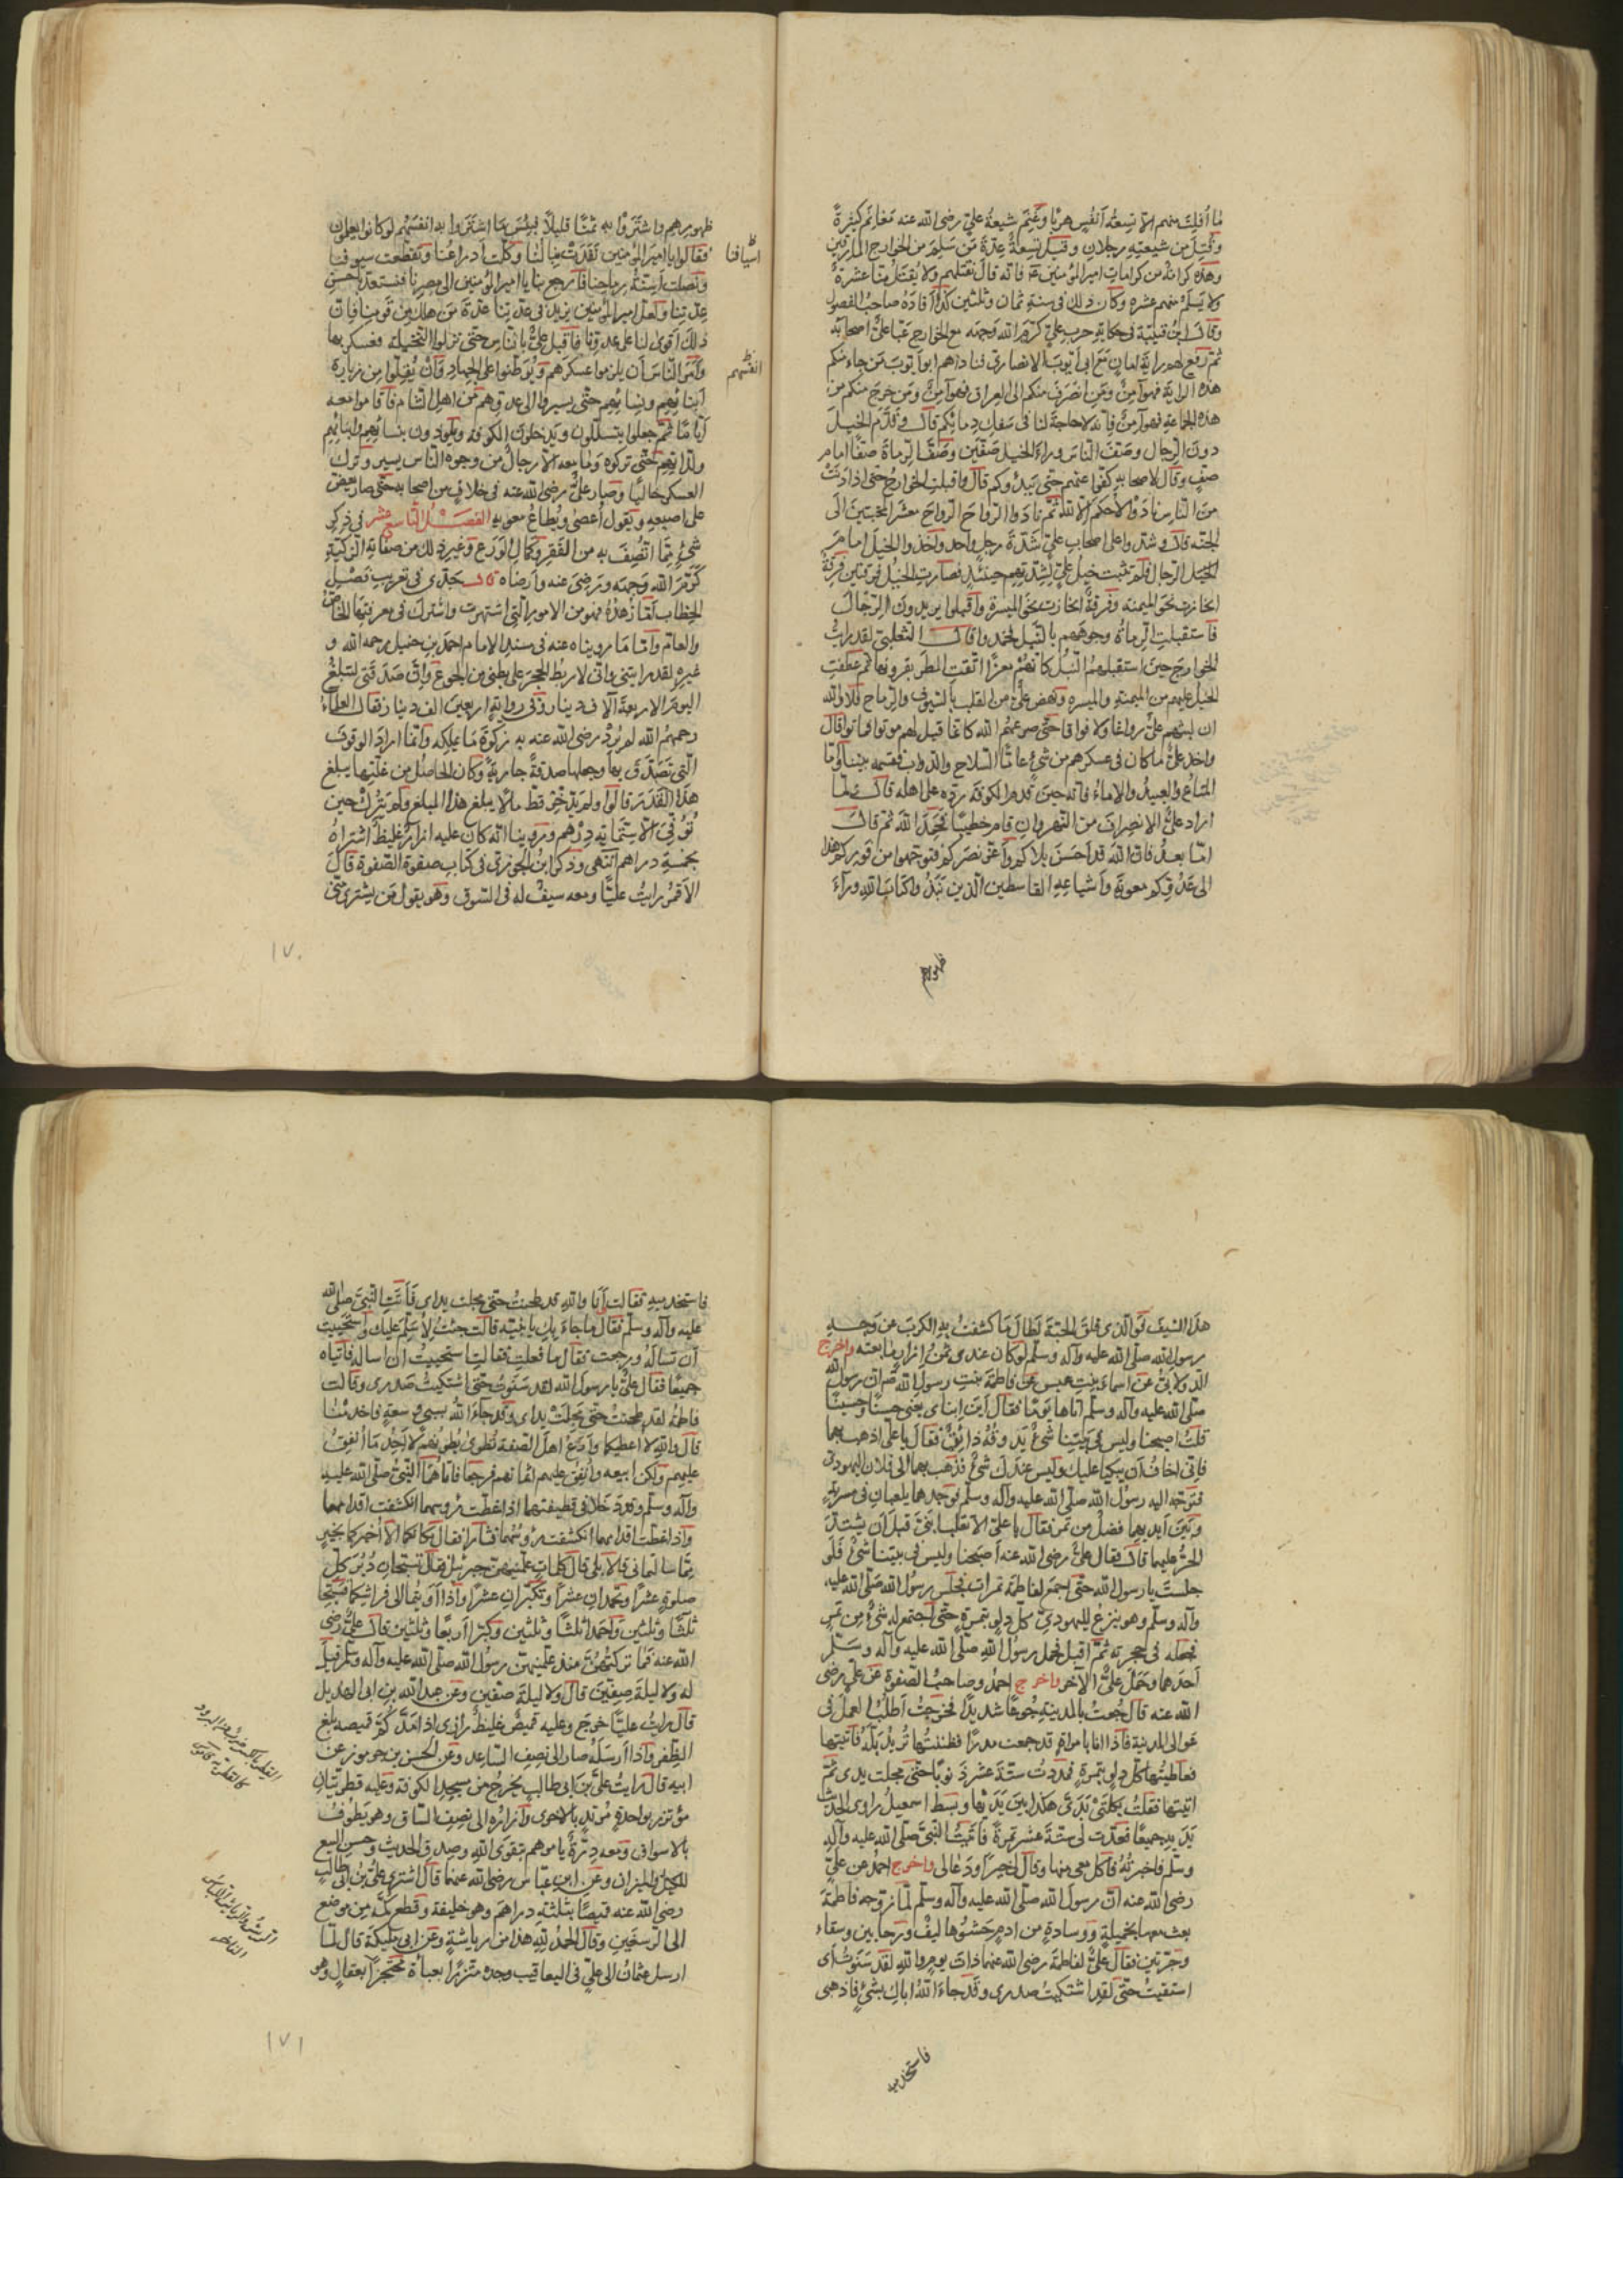 ما أفلت منهم الا تسعة أنفس هربا وغنم شيعة علي رضي الله عنه مغانم كثيرة
وقتل من شيعته رجلان وقيل تسعة عدة من سلم من الخوارج المارقين
وهذه كرامة من كرامات امير المؤمنين فانه قال نقتلهم ولا يقتل منا عشرة
ولا يسلم منهم عشرة وكان ذلك في سنة ثمان وثلثين كذا أفاده صاحب الفصول
وقال ابن قتيبة في حكاية حرب علي كرم الله وجهه مع الخوارج عبا علي اصحابه
ثم رفع لهم راية امان مع ابي أيوب الانصاري فناداهم ابو أيوب من جاء منكم
هذه الراية فهو آمن ومن انصرف منكم الى العراق فهو آمن ومن خرج منكم من
هذه الجماعة فهو آمن فانه لا حاجة لنا في سفك دمائكم قال وقدم الخيل
دون الرجال وصف الناس وراء الخيل صفين وصف الرماة صفا امام
صف وقال لاصحابه كفوا عنهم حتى يبدؤكم قال واقبلت الخوارج حتى اذا دنت
من الناس نادوا لا حكم الا لله ثم نادوا الرواح الرواح معشر المخبتين الى
الجنة قال وشدوا على اصحاب علي شدة رجل واحد واخذوا الخيل امامهم
الخيل الرجال فلم تثبت خيل علي لشدتهم حينئذ فصارت الخيل فرقتين فرقة
انحازت نحو الميمنة وفرقة انحازت نحو الميسرة وأقبلوا يريدون الرجال
فاستقبلت الرماة وجوههم بالنبل فخمدوا قال الثعلبي لقد رأيت
الخوارج حين استقبلهم النبل كانهم معز اتقت المطر بقرونها ثم عطفت
الخيل عليهم من الميمنة والميسرة ونهض علي من القلب بالسيوف والرماح فلا والله
ان لبثهم علي رواغا ولا فواقا حتى صرعهم الله كانما قيل لهم موتوا فماتوا قال
واخذ علي ما كان في عسكرهم من شيء فاما السلاح والدواب فقسمه بيننا وأما
المتاع والعبيد والاماء فانه حين قدم الكوفة رده على اهله قال لما
اراد علي الانصراف من النهروان قام خطيبا فحمد الله ثم قال
اما بعد فان الله قد احسن بلاكم وأعز نصركم فتوجهوا من فوركم هذا
الى عدوكم معوية وأشياعه القاسطين الذين نبذوا كتاب الله وراء
ظهورهم
ظهورهم واشتروا به ثمنا قليلا فبئس ما اشتروا به انفسهم لو كانوا يعلمون
فقالوا يا امير المؤمنين نفدت نبالنا وكلت أدراعنا وتقطعت سيوفنا
ونصلت اسنة رماحنا فارجع بنا يا امير المؤمنين الى مصرنا فنستعد باحسن
عدتنا ولعل امير المؤمنين يزيد في عدتنا عدة من هلك من قومنا فان
ذلك أقوى لنا على عدونا فاقبل علي بالناس حتى نزلوا النخيلة فعسكر بها
وأمر الناس أن يلزموا عسكرهم ويوطنوا على الجهاد وأن يقلوا من زيارة
ابنائهم ونسائهم حتى يسيروا الى عدوهم من اهل الشام فأقاموا معه
أياما ثم جعلوا يتسللون ويدخلون الكوفة ويلوذون بنسائهم وابنائهم
ولذاتهم حتى تركوه وما معه الا رجال من وجوه الناس يسير وترك
العسكر خاليا وصار علي رضي الله عنه في خلاف من اصحابه حتى صار يعض
على اصبعه ويقول أعصى ويطاع معويه الفصل التاسع عشر في ذكر
شيء مما اتصف به من الفقر وكمال الورع وغير ذلك من صفاته الزكية
كرم الله وجهه ورضي عنه وأرضاه قال جدي في تعريب فصل
الخطاب أما زهده فهو من الامور التي اشتهرت واشترك في معرفتها الخاص
والعام واما ما رويناه عنه في مسند الامام احمد بن حنبل رحمه الله و
غيره لقد رايتني واني لاربط الحجر على بطني من الجوع وإن صدقتي لتبلغ
اليوم الاربعة آلاف دينار وفي رواية اربعين الف دينار فقال العلماء
رحمهم الله لم يرد رضي الله عنه به زكوة ما يملكه وانما اراد الوقوف
التي تصدق بها وجعلها صدقة جارية وكان الحاصل من غلتها يبلغ
هذا القدر قالوا ولم يدخر قط مالا يبلغ هذا المبلغ ولم يترك حين
توفي الا ستمائة درهم وروينا انه كان عليه ازار غليظ اشتراه
بخمسة دراهم انتهى وذكر ابن الجوزي في كتاب صفوة الصفوة قال
الارقم رايت عليا ومعه سيف له في السوق وهو يقول من يشتري مني
اسيافنا
انفسهم
١٧٠
هذا السيف فوالذي فلق الحبة لطال ما كشفت به الكرب عن وجه
رسول الله صلى الله عليه وآله وسلم لو كان عندي ثمن إزار ما بعته واخرج
الدولابي عن اسماء بنت عميس عن فاطمة بنت رسول الله ان رسول الله
صلى الله عليه وآله وسلم أتاها يوما فقال أين ابناي يعني حسنا وحسينا
قلت اصبحنا وليس في بيتنا شيء يذوقه ذائق فقال يا علي اذهب بهما
فاني اخاف أن يبكيا عليك وليس عندك شيء فذهب بهما الى فلان اليهودي
فتوجه اليه رسول الله صلى الله عليه وآله وسلم فوجدهما يلعبان في مسربة
وبين أيديهما فضل من تمر فقال يا علي الا تقلب ابني قبل أن يشتد
الحر عليهما قال فقال علي رضي الله عنه أصبحنا وليس في بيتنا شيء فلو
جلست يا رسول الله حتى اجمع لفاطمة تمرات فجلس رسول الله صلى الله عليه
وآله وسلم وهو ينزع لليهودي كل دلو بتمرة حتى اجتمع له شيء من تمر
فجعله في حجزته ثم اقبل فحمل رسول الله صلى الله عليه وآله وسلم
أحدهما وحمل علي الآخر واخرج احمد وصاحب الصفوة عن علي رضي
الله عنه قال جعت بالمدينة جوعا شديدا فخرجت أطلب العمل في
عوالي المدينة فاذا انا بامراة قد جمعت مدرا فظننتها تريد بله فأتيتها
فعاطيتها كل دلو بتمرة فمددت ستة عشر ذنوبا حتى مجلت يدي ثم
اتيتها فقلت بكلتي يدي هكذا بين يديها وبسط اسمعيل راوي الحديث
يديه جميعا فعدت لي ستة عشر تمرة فأتيت النبي صلى الله عليه وآله
وسلم فاخبرته فأكل معي منها وقال لي خيرا ودعا لي واخرج احمد عن علي
رضي الله عنه ان رسول الله صلى الله عليه وآله وسلم لما زوجه فاطمة
بعث معها بخميلة ووسادة من ادم حشوها ليف ورحايين وسقاء
وجرتين فقال علي لفاطمة رضي الله عنهما ذات يوم والله لقد سنوت أي
استقيت حتى لقد اشتكيت صدري وقد جاء الله اباك بشيء فاذهبي
فاستخدميه
فاستخدميه فقالت أنا والله قد طحنت حتى مجلت يداي فأتت النبي صلى الله
عليه وآله وسلم فقال ما جاء بك يا بنية قالت جئت لأسلم عليك واستحييت
ان تساله ورجعت فقال ما فعلت فقالت استحييت ان اساله فاتياه
جميعا فقال علي يا رسول الله لقد سنوت حتى اشتكيت صدري وقالت
فاطمة لقد طحنت حتى مجلت يداي وقد جاءك الله بسبي وسعة فاخدمنا
قال والله لا أعطيكما وأدع اهل الصفة تطوى بطونهم لا أجد ما أنفق
عليهم ولكن ابيعه وأنفق عليهم اثمانهم فرجعا فاتاهما النبي صلى الله عليه
وآله وسلم وقد دخلا في قطيفتهما اذا غطت رؤسهما انكشفت اقدامهما
واذا غطت اقدامهما انكشفت رؤسهما فثارا فقال مكانكما الا أخبركما بخير
مما سالتماني قالا بلى قال كلمات علمنيهن جبرئيل فقال تسبحان دبر كل
صلوة عشرا وتحمدان عشرا وتكبران عشرا واذا أويتما الى فراشكما فسبحا
ثلثا وثلثين واحمدا ثلثا وثلثين وكبرا أربعا وثلثين قال علي رضي
الله عنه فما تركتهن منذ علمنيهن رسول الله صلى الله عليه وآله وسلم قيل
له ولا ليلة صفين قال ولا ليلة صفين وعن عبد الله بن ابي الهذيل
قال رايت عليا خرج وعليه قميص غليظ رازي اذا مد كم قميصه بلغ
الظفر وإذا أرسله صار الى نصف الساعد وعن الحسن بن جرموز عن
ابيه قال رايت علي بن ابي طالب يخرج من مسجد الكوفة وعليه قطريتان
مؤتزر بواحدة مرتد بالاخرى وازاره الى نصف الساق وهو يطوف
بالاسواق ومعه درة يامرهم بتقوى الله وصدق الحديث وحسن البيع
للكيل والميزان وعن ابن عباس رضي الله عنهما قال اشترى علي بن ابي طالب
رضي الله عنه قميصا بثلثة دراهم وهو خليفة وقطع كمه من موضع
الى الرسغين وقال الحمد لله هذا من رياشه وعن ابي مليكة قال لما
ارسل عثمان الى علي في اليعاقيب وجده متزرا بعباءة محتجزا بعقال وهو
١٧١